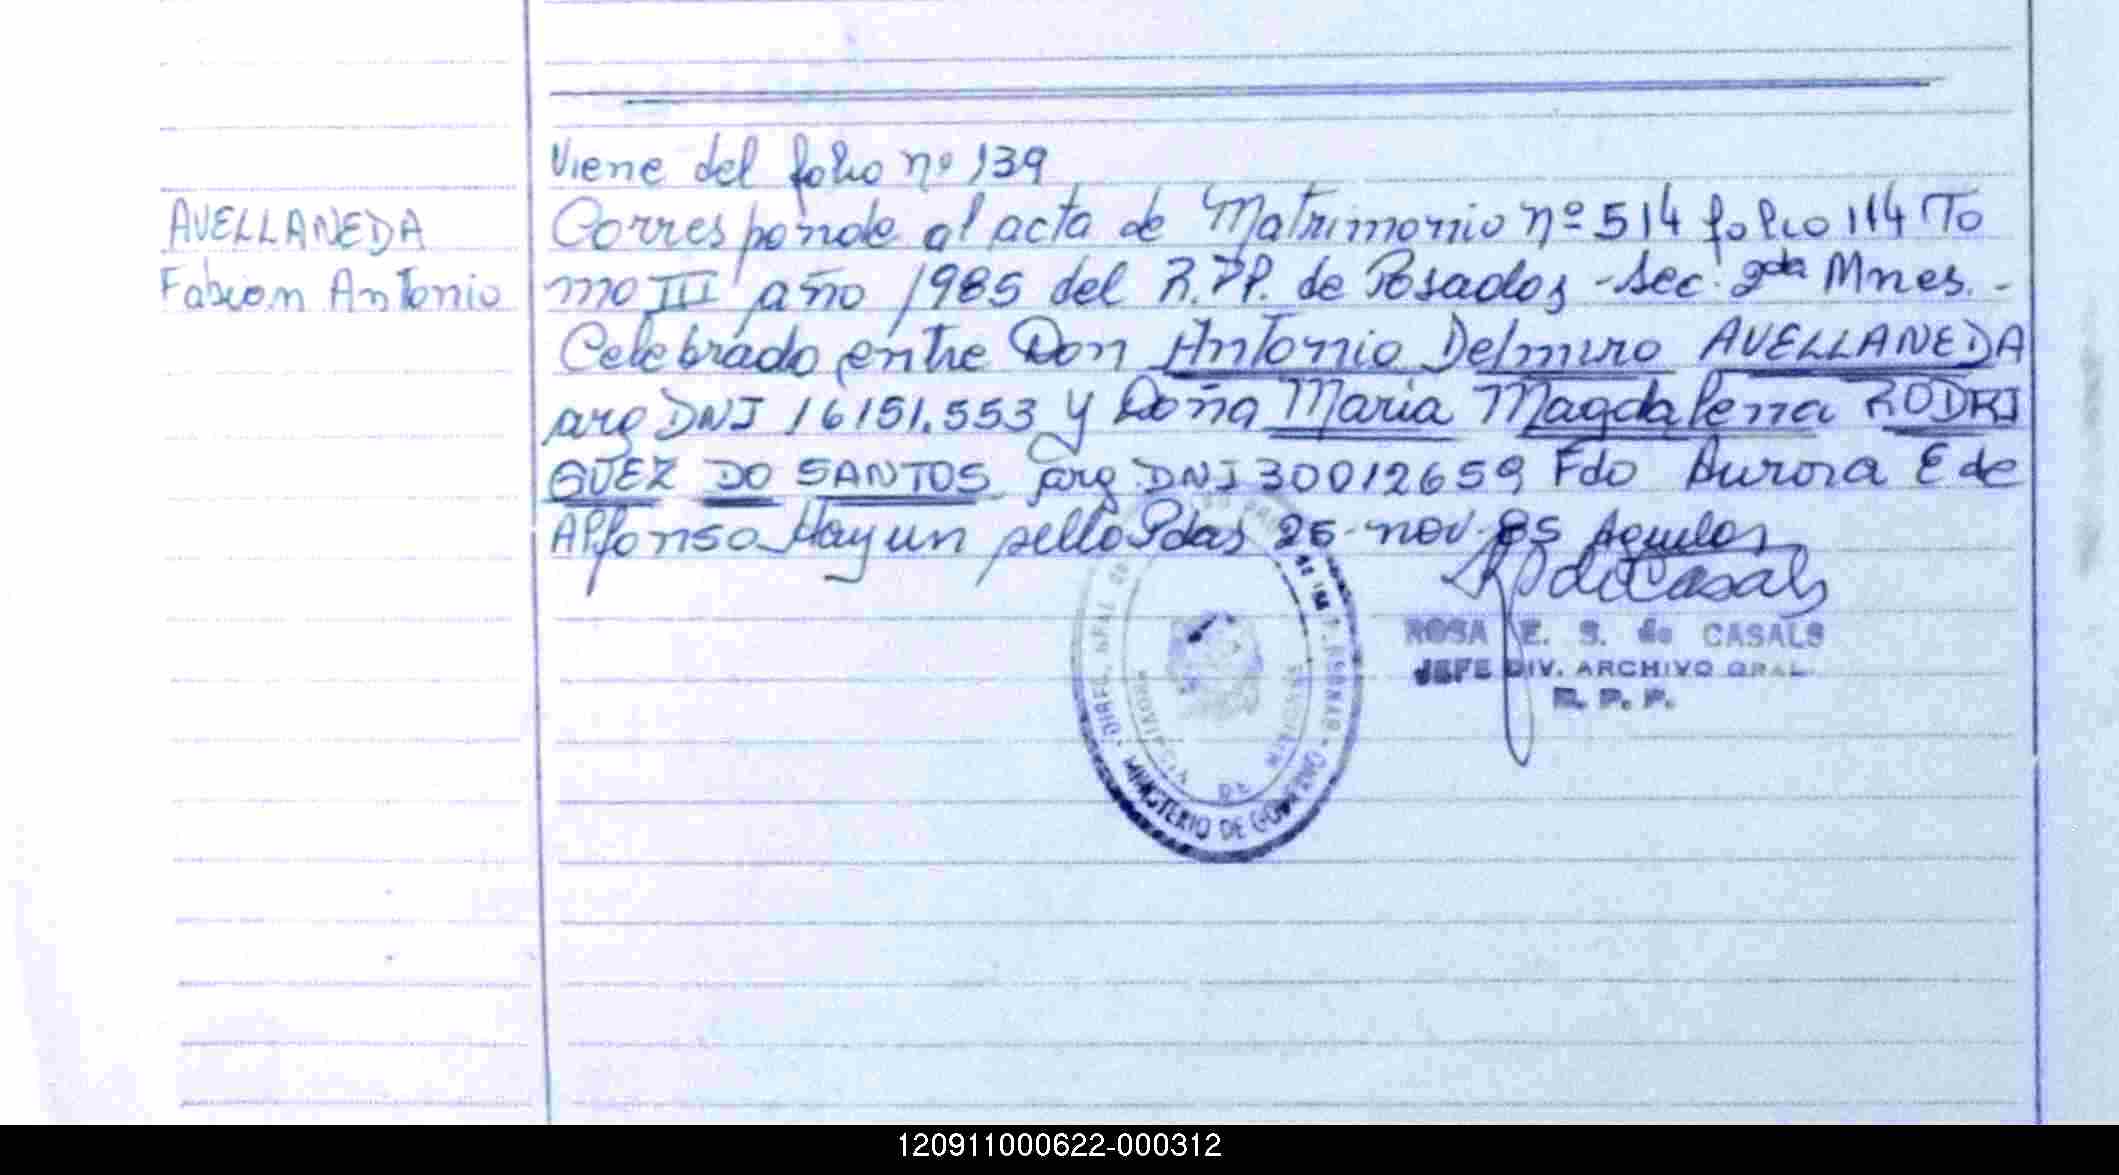 Viene del folio nº 139
AVELLANEDA
Fabian Antonio
Corresponde al acta de Matrimonio nº 514 folio 114 To
mo III año 1985 del R.PP. de Posadas - Sec. 2da Mnes. -
Celebrado entre Don Antonio Delmiro AVELLANEDA
arg DNI 16151.553 y Doña Maria Magdalena RODRI
GUEZ DO SANTOS arg DNI 30012659 Fdo Aurora E de
Alfonso Hay un sello Pdas 26-nov-85
ROSA E. S. de CASALS
JEFE DIV. ARCHIVO GRAL.
R. P. P.
MINISTERIO DE GOBIERNO
PROVINCIA DE MISIONES
120911000622-000312